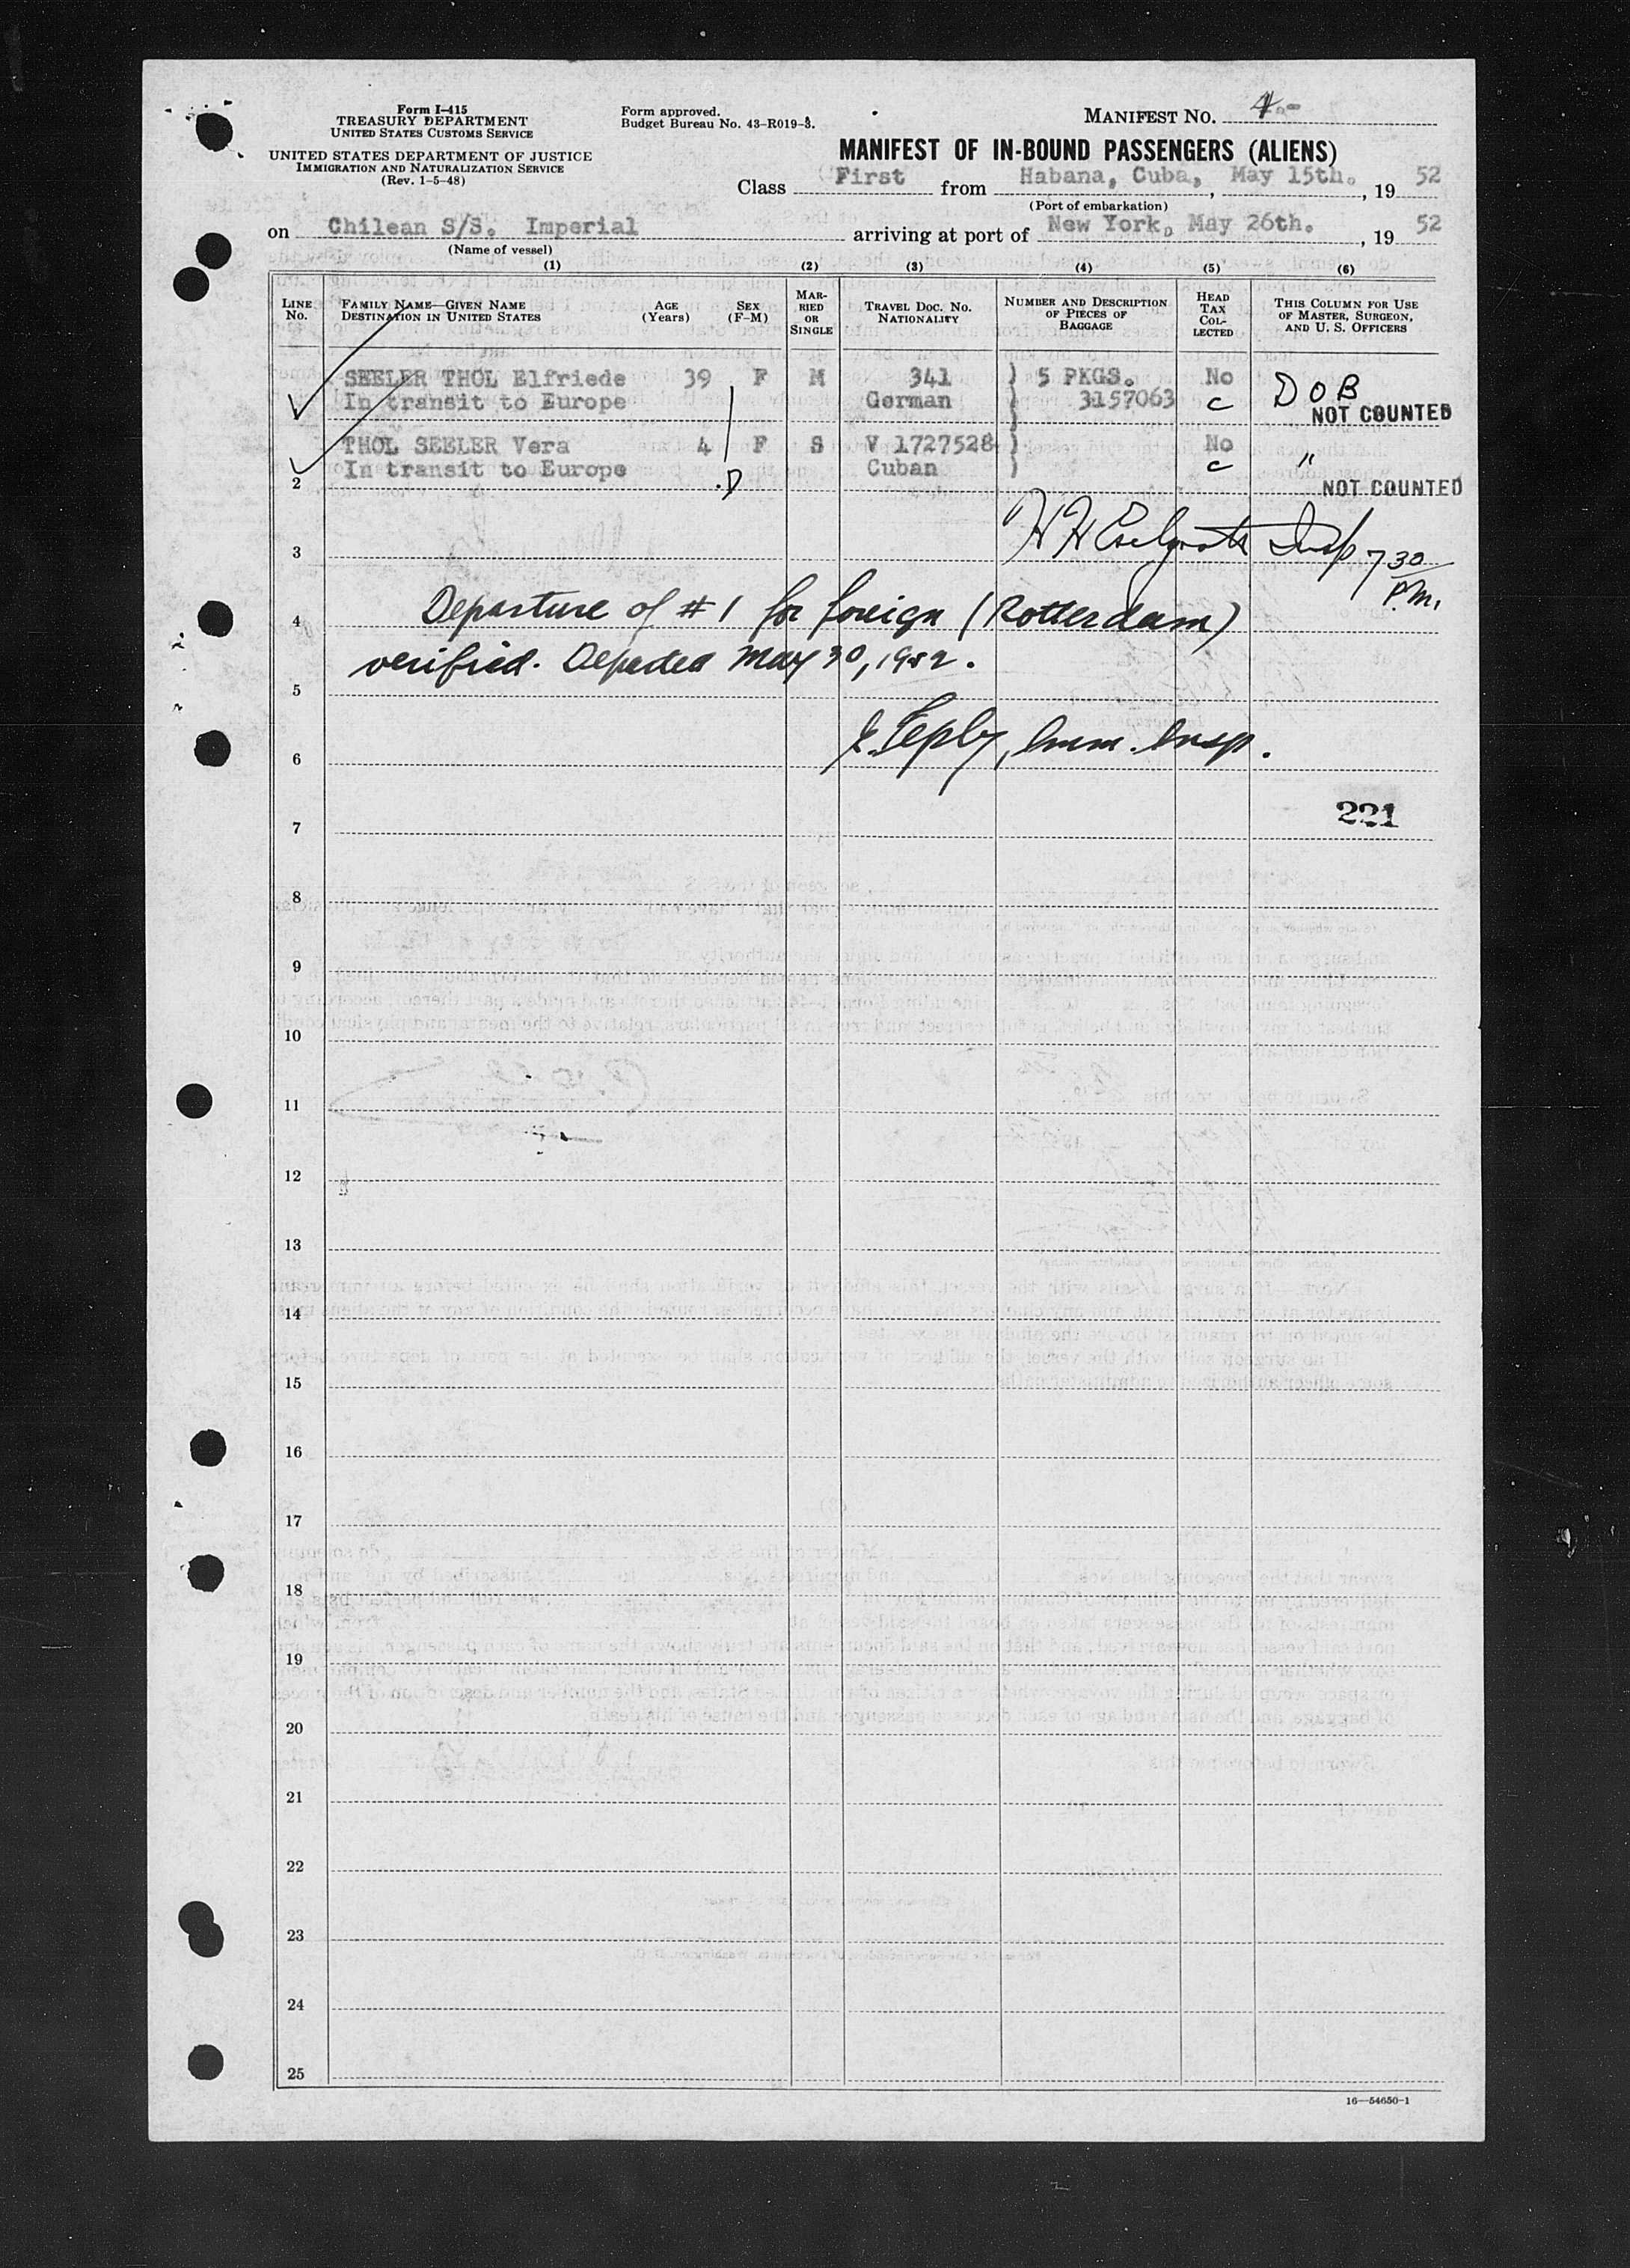 Form I-415
TREASURY DEPARTMENT
UNITED STATES CUSTOMS SERVICE
UNITED STATES DEPARTMENT OF JUSTICE
IMMIGRATION AND NATURALIZATION SERVICE
(Rev. 1-5-48)
Form approved.
Budget Bureau No. 43-R019-3.
MANIFEST No. 4
MANIFEST OF IN-BOUND PASSENGERS (ALIENS)
Class First from Habana, Cuba, May 15th. , 19 52
(Port of embarkation)
on Chilean S/S. Imperial arriving at port of New York, May 26th. , 19 52
(Name of vessel)
(1) (2) (3) (4) (5) (6)
LINE No. FAMILY NAME—GIVEN NAME DESTINATION IN UNITED STATES AGE (Years) SEX (F-M) MARRIED OR SINGLE TRAVEL DOC. No. NATIONALITY NUMBER AND DESCRIPTION OF PIECES OF BAGGAGE HEAD TAX COLLECTED THIS COLUMN FOR USE OF MASTER, SURGEON, AND U. S. OFFICERS
SEELER THOL Elfriede 39 F M 341 ) 5 PKGS. No D O B
In transit to Europe German ) 3157063 c NOT COUNTED
THOL SEELER Vera 4 F S V 1727528 ) No "
In transit to Europe .D Cuban ) c
2 NOT COUNTED
3 Insp 7 30 P.M.
4 Departure of #1 for foreign (Rotterdam)
verified. Departed May 30, 1952.
5
6 Imm. Insp.
221
7
8
9
10
11
12
13
14
15
16
17
18
19
20
21
22
23
24
25
16—54650-1